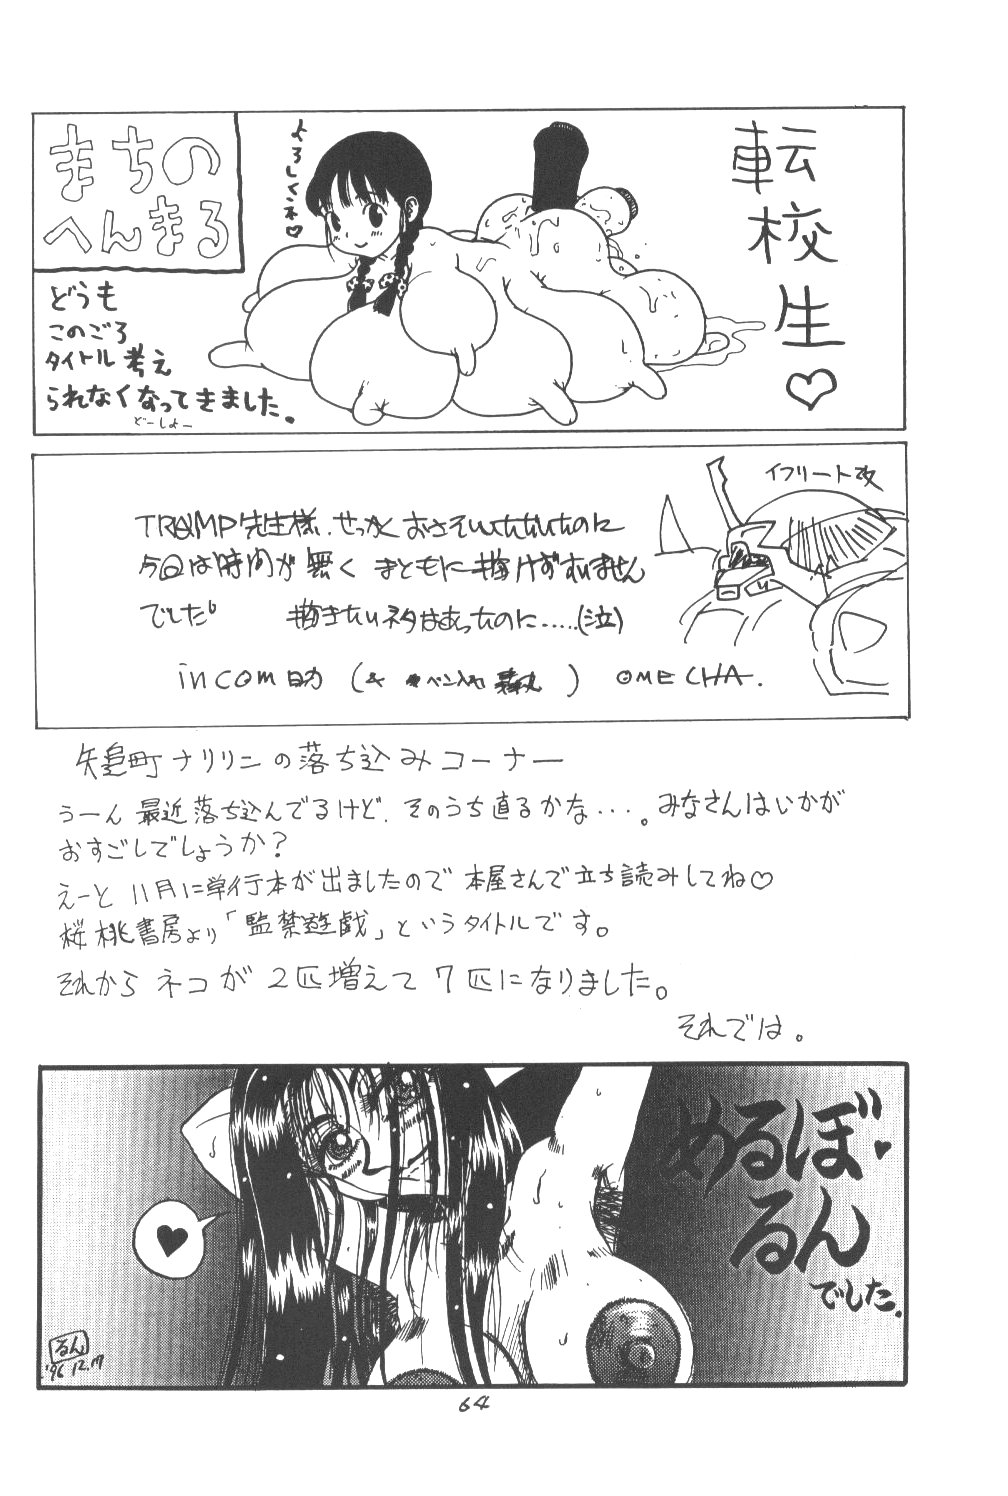 まちの
へんまる
どうも
このごろ
タイトル考え
られなくなってきました。
どーしよー
よろしくネ♡
転校生♡
イフリート改
TRAMP先生様、せっかくおさそいいただいたのに
今回は時間が無くまともに描けずすいません
でした。 描きたいネタはあったのに.....(泣)
incom助 (& ペン入れ ) OMECHA.
矢追町ナリリンの落ち込みコーナー
うーん 最近落ち込んでるけど、そのうち直るかな・・・。みなさんはいかが
おすごしでしょうか?
えーと 11月に単行本が出ましたので 本屋さんで立ち読みしてね♡
桜桃書房より「監禁遊戯」というタイトルです。
それから ネコが 2匹増えて 7匹になりました。
それでは。
♥
めるぼ♥
るん
でした.
るん
'96 12.17
64